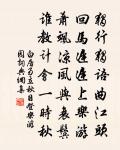 獨行獨語曲江頭
回馬遲遲上樂游
蕭颯涼風與衰鬢
誰教計會一時秋
白居易立秋日登樂游
園詞典網集